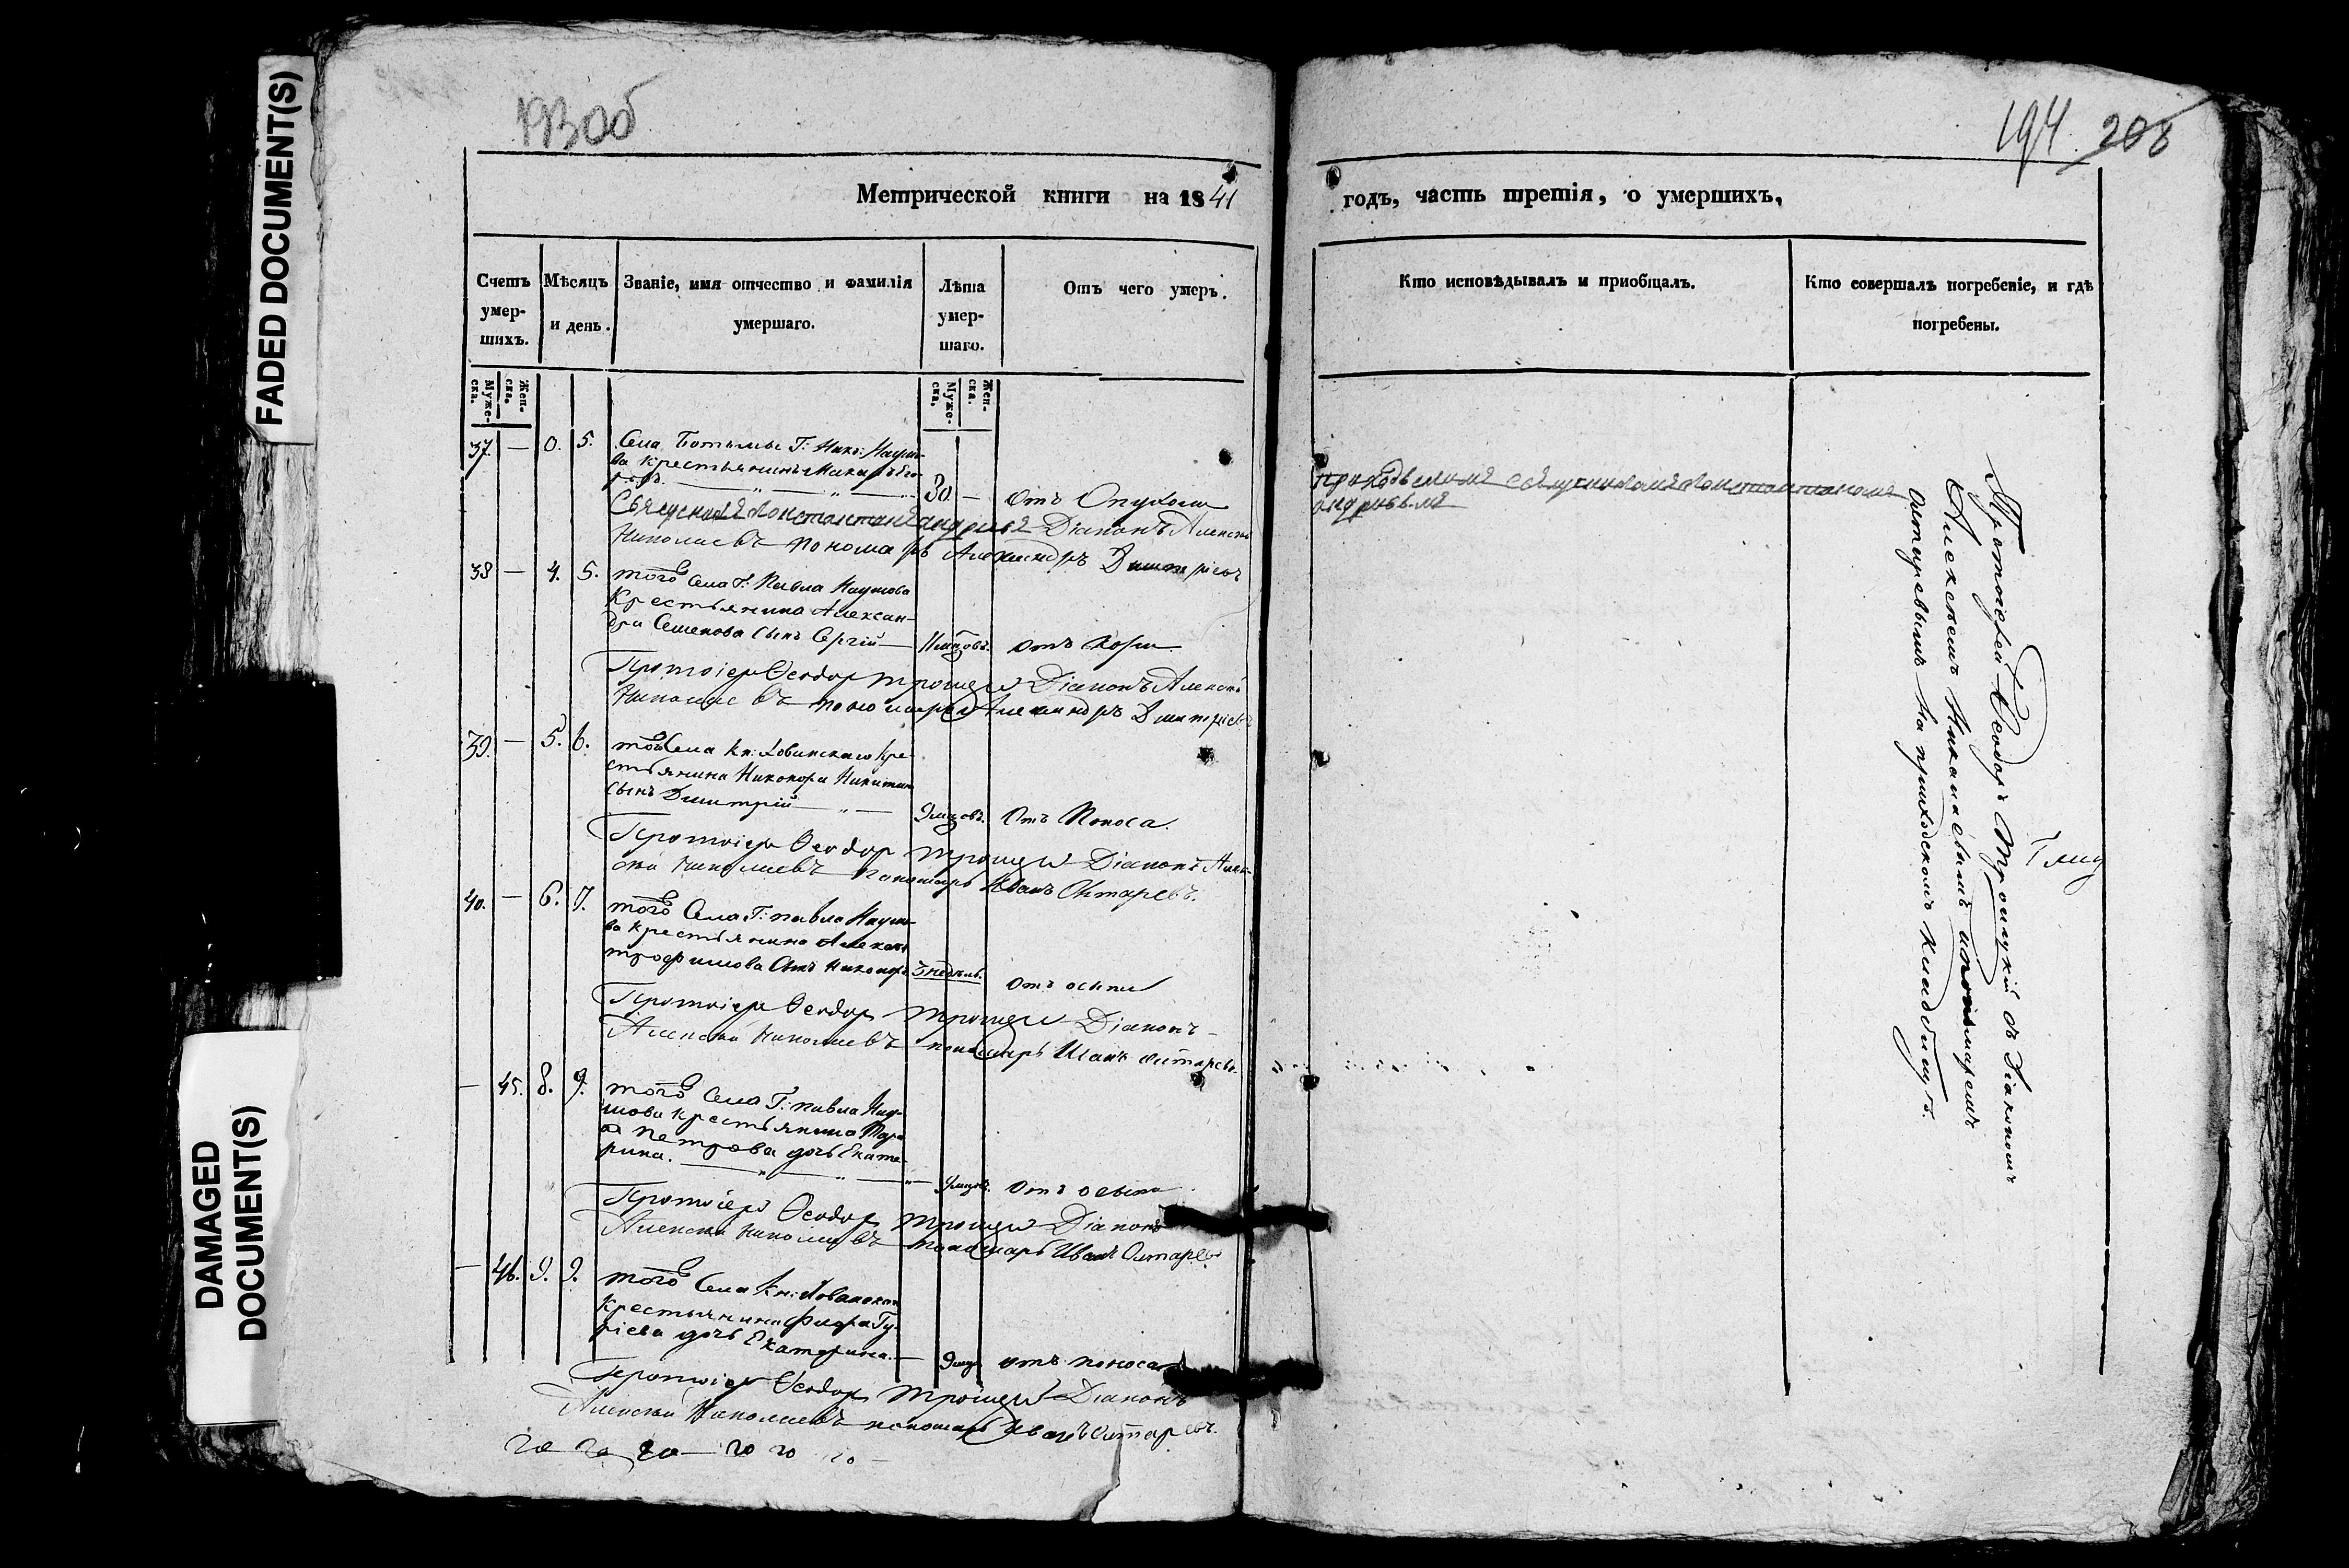 FADED DOCUMENT(S)
DAMAGED
DOCUMENT(S)
193об
194. 206
Метрической книги на 1841
годъ, часть третія, о умершихъ,
Счетъ умер-шихъ.
Мѣсяцъ и день.
Званіе, имя отчество и фамилія умершаго.
Лѣта умер-шаго.
Отъ чего умеръ.
Кто исповѣдывалъ и приобщалъ.
Кто совершалъ погребеніе, и гдѣ погребены.
Муже-ска.
Жен-ска.
Муже-ска.
Жен-ска.
37. — 5. Села Г: Ник: Наумо-
ва крестьянинъ Макаръ Его-
ровъ. 30 — отъ Опухоли
Священникъ Константинъ Андреевъ Діаконъ Алексѣй
Николаевъ пономарь Александръ Димитріевъ
38 — 4. 5. того Села Г: Павла Наумова
Крестьянина Алексан-
дра Семенова сынъ Сергій — отъ кори
Протоіерей Ѳеодоръ Троицкій Діаконъ Алексѣй
Николаевъ пономарь Александръ Димитріевъ
39. — 5. 6. того Села Кн: Хованскаго Кре-
стьянина Никонора Никитина
сынъ Дмитрій — Отъ Поноса.
Протоіерей Ѳеодоръ Троицкій Діаконъ Алек-
сѣй Николаевъ Пономарь Иванъ Октаревъ.
40. — 6. 7. того Села Г: павла Наумо-
ва крестьянина
трофимова Сынъ Никоноръ 3 недѣль. отъ оспы
Протоіерей Ѳеодоръ Троицкій Діаконъ
Алексѣй Николаевъ пономарь Иванъ
— 45. 8. 9. того Села Г: павла Нау-
мова крестьянина
Петрова дочь Екате-
рина. отъ оспы
Протоіерей Ѳеодоръ Троицкій Діаконъ
Алексѣй Николаевъ пономарь Иванъ
— 46. 9. 9. того Села Кн: Хованскаго
Крестьянина Гу-
ріева дочь Екатерина. — отъ поноса
Протоіерей Ѳеодоръ Троицкій Діаконъ
Алексѣй Николаевъ пономарь Иванъ
приходскимъ священникомъ Константиномъ
Андреевымъ
Протоіерей Ѳеодоръ Троицкій съ Діакономъ
Алексѣемъ Николаевымъ и пономаремъ
на приходскомъ кладбищѣ.